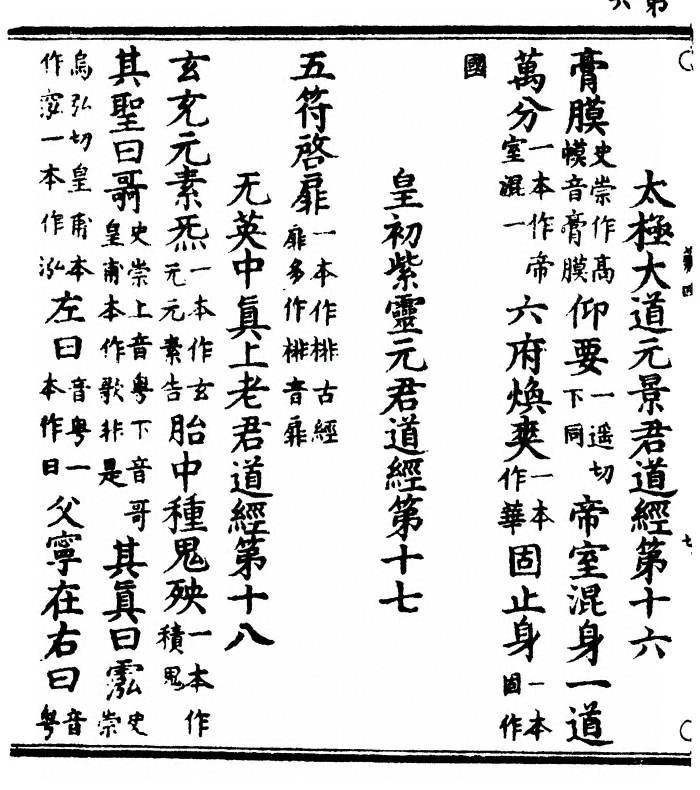 太極大道元景君道經第十六
膏膜史崇作髙幙音膏膜仰要一遥切下同帝室混身一道
萬分一本作帝室混一六府煥爽一本作華固止身一本固作
國
皇初紫靈元君道經第十七
五符啓扉一本作排古經扉多作排音扉
无英中眞上老君道經第十八
玄充元素炁一本作玄元元素告胎中種鬼殃一本作積鬼
其聖曰史崇上音粤下音哥皇甫本作歌非是其眞曰史崇
烏弘切皇甫本作一本作泓左曰音粤一本作日父寧在右曰音粤